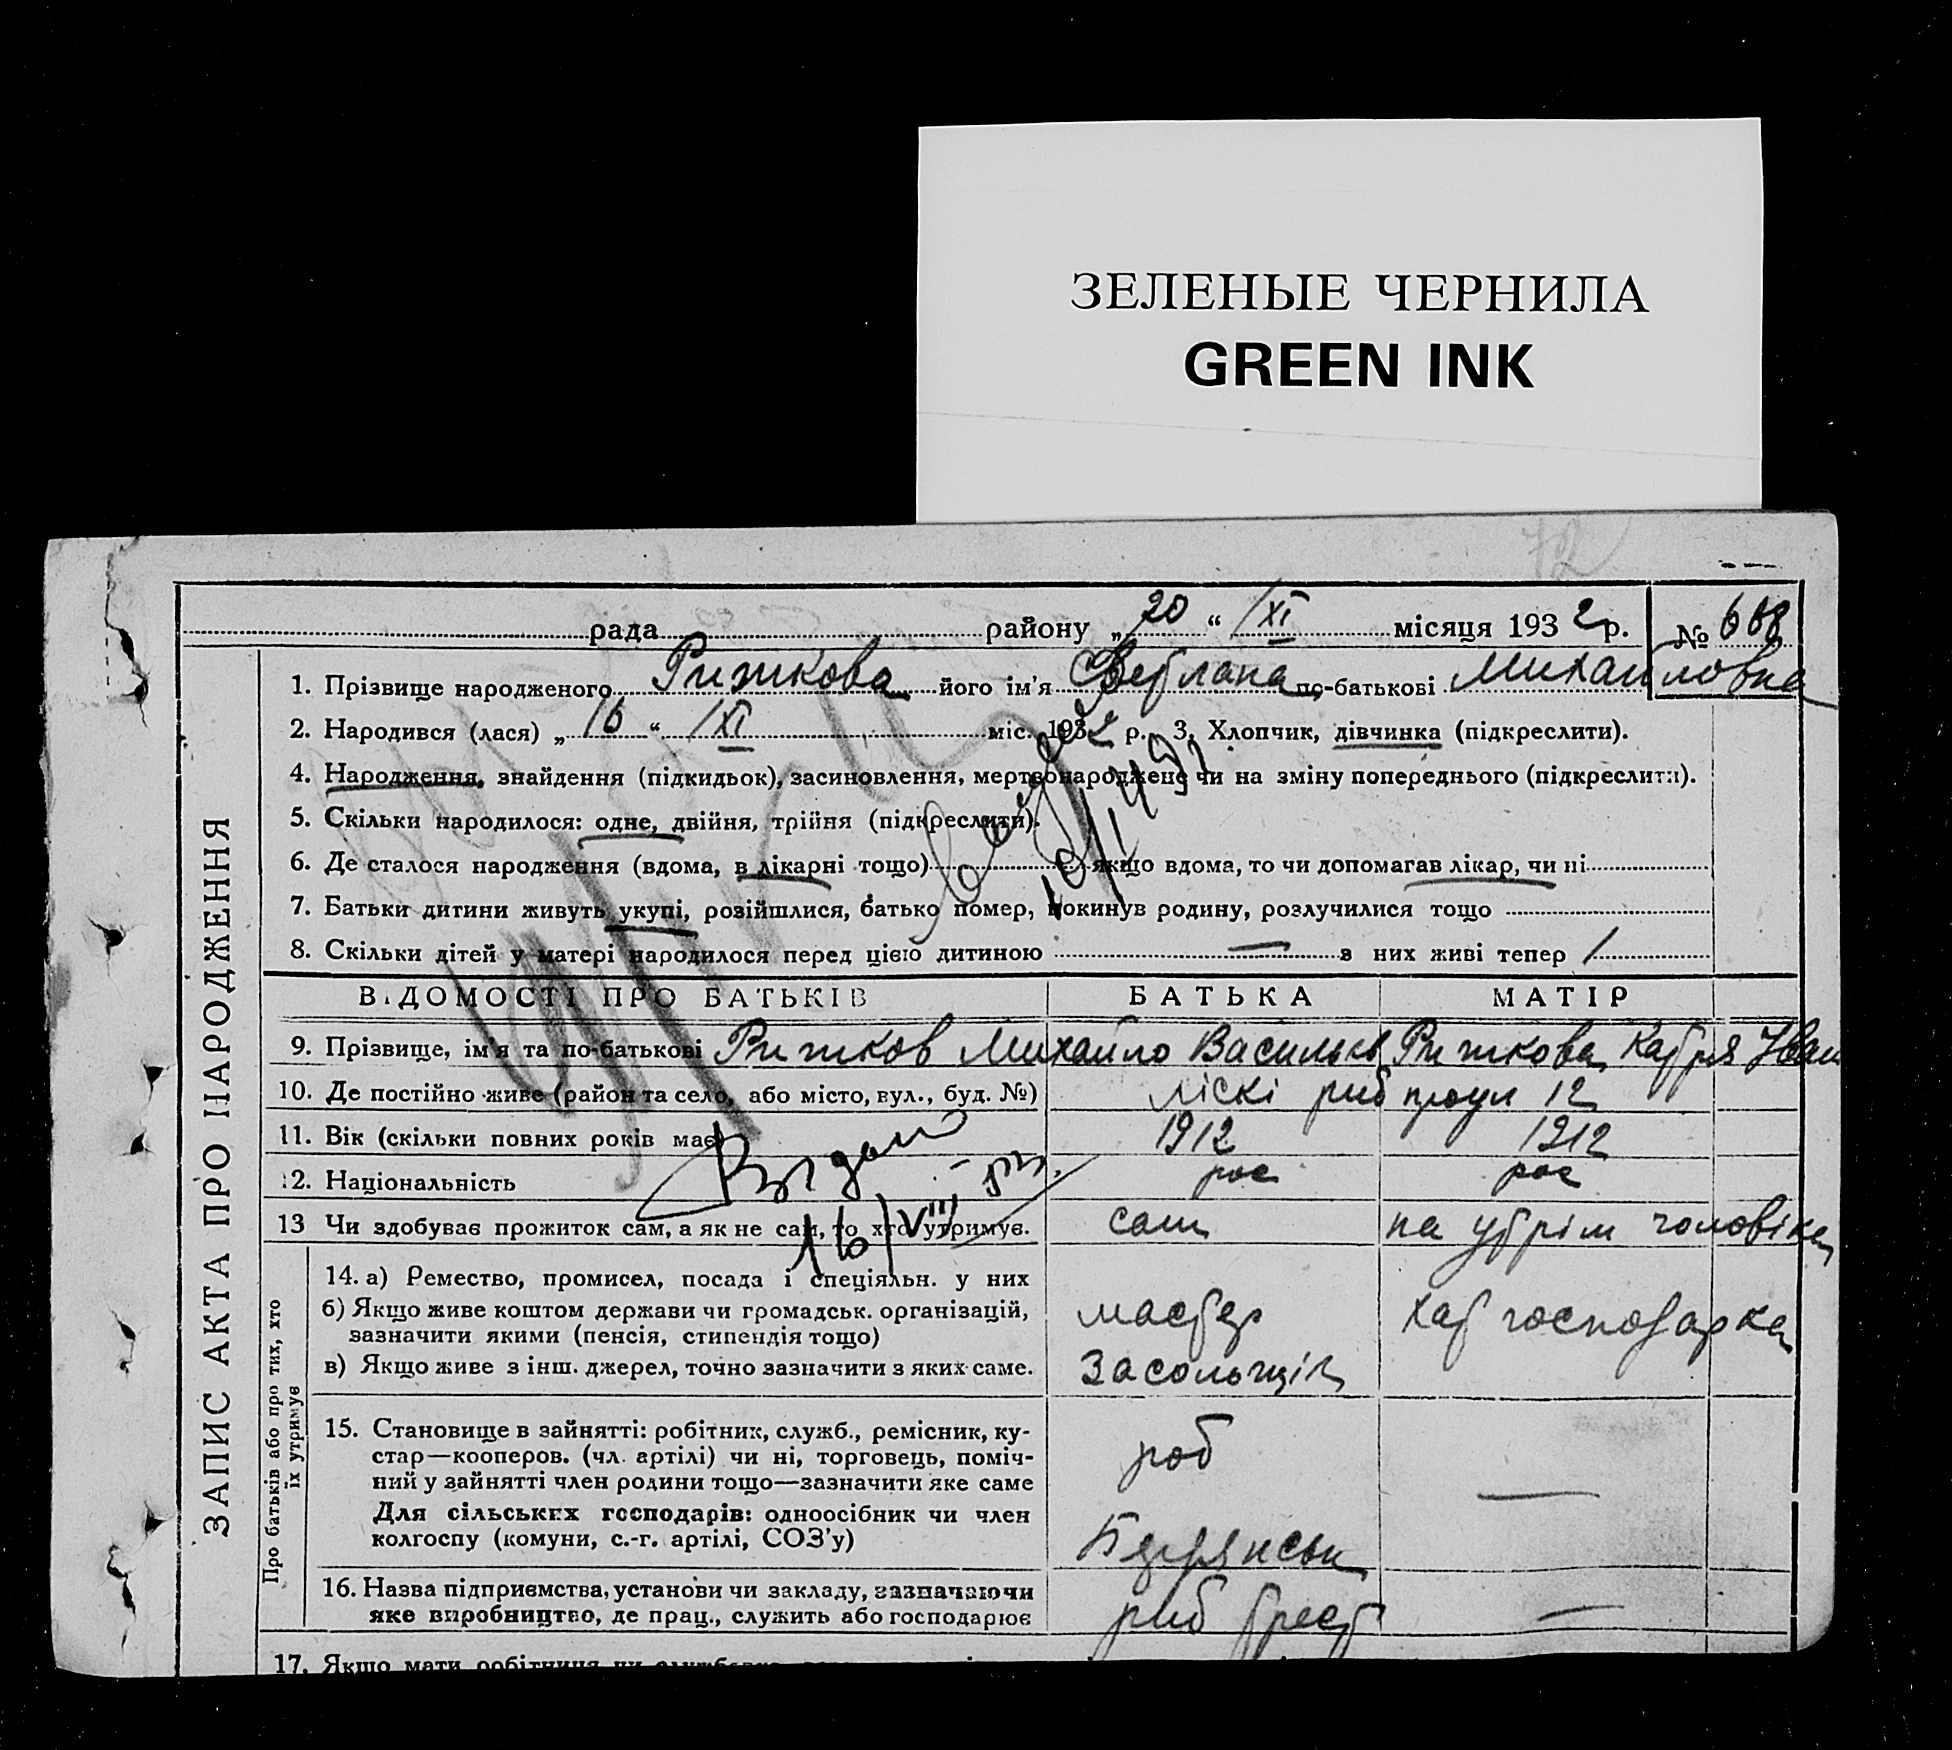 ЗЕЛЕНЫЕ ЧЕРНИЛА
GREEN INK
72
рада района району „20“ XI місяця 1932 р. № 668
ЗАПИС АКТА ПРО НАРОДЖЕННЯ
1. Прізвище народженого Рижкова його ім'я Светлана по-батькові Михайловна
2. Народився (лася) „16“ XI міс. 1932 р. 3. Хлопчик, дівчинка (підкреслити).
4. Народження, знайдення (підкидьок), засиновлення, мертвонароджене чи на зміну попереднього (підкреслити).
5. Скільки народилося: одне, двійня, трійня (підкреслити).
6. Де сталося народження (вдома, в лікарні тощо) якщо вдома, то чи допомагав лікар, чи ні
7. Батьки дитини живуть укупі, розійшлися, батько помер, покинув родину, розлучилися тощо
8. Скільки дітей у матері народилося перед цією дитиною — з них живі тепер 1
ВІДОМОСТІ ПРО БАТЬКІВ БАТЬКА МАТІР
9. Прізвище, ім'я та по-батькові Рижков Михайло Васильев Рижкова Катря Іван
10. Де постійно живе (район та село, або місто, вул., буд. №) ліскі риб проул 12
11. Вік (скільки повних років має) 1912 1912
12. Національність рос рос
Видано
16/VIII
13 Чи здобуває прожиток сам, а як не сам, то хто утримує. сам на утрім чоловіка
Про батьків або про тих, хто їх утримує
14. а) Ремество, промисел, посада і спеціяльн. у них
б) Якщо живе коштом держави чи громадськ. організацій, мастер хат господарка
зазначити якими (пенсія, стипендія тощо)
в) Якщо живе з інш. джерел, точно зазначити з яких саме. Засольщік
15. Становище в зайнятті: робітник, служб., ремісник, ку-
стар—кооперов. (чл. артілі) чи ні, торговець, поміч- роб
ний у зайнятті член родини тощо—зазначити яке саме —
Для сільських господарів: одноосібник чи член
колгоспу (комуни, с.-г. артілі, СОЗ'у) Бердянськ
16. Назва підприємства, установи чи закладу, зазначаючи
яке виробництво, де прац., служить або господарює риб трест —
17. Якщо мати робітниця чи службовка